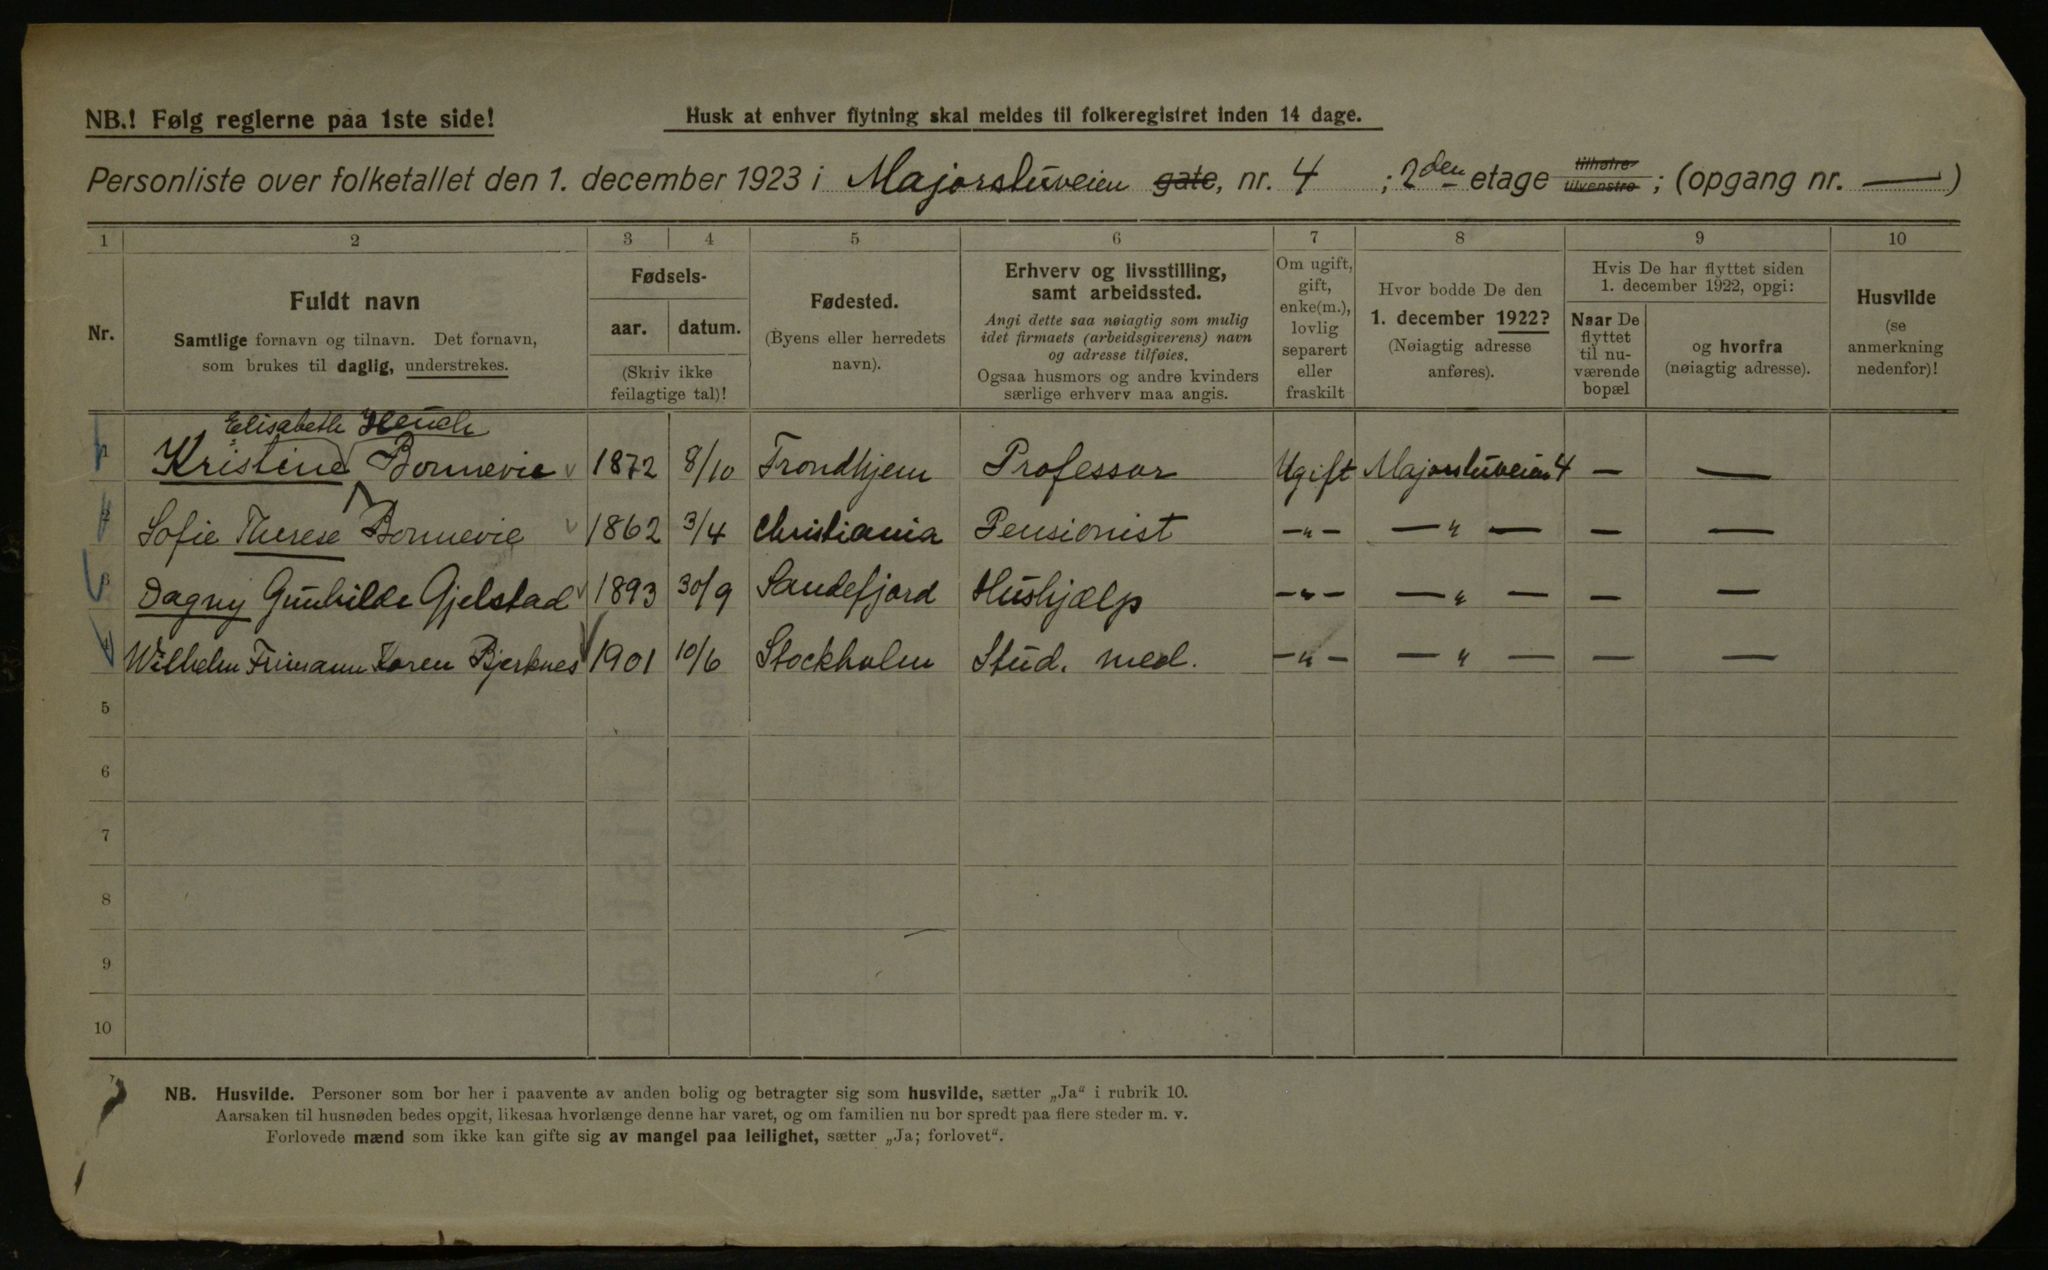 NB.! Følg reglerne paa 1ste side!
Husk at enhver flytning skal meldes til folkeregistret inden 14 dage.
Personliste over folketallet den 1. december 1923 i Majorstuveien gate, nr. 4 ; 2den etage tilhøire tilvenstre ; (opgang nr. — )
1 2 3 4 5 6 7 8 9 10
Nr.
Fuldt navn
Samtlige fornavn og tilnavn. Det fornavn,
som brukes til daglig, understrekes.
Fødsels-
aar. datum.
(Skriv ikke
feilagtige tal)!
Fødested.
(Byens eller herredets
navn).
Erhverv og livsstilling,
samt arbeidssted.
Angi dette saa nøiagtig som mulig
idet firmaets (arbeidsgiverens) navn
og adresse tilføies.
Ogsaa husmors og andre kvinders
særlige erhverv maa angis.
Om ugift,
gift,
enke(m.),
lovlig
separert
eller
fraskilt
Hvor bodde De den
1. december 1922?
(Nøiagtig adresse
anføres).
Hvis De har flyttet siden
1. december 1922, opgi:
Naar De
flyttet
til nu-
værende
bopæl
og hvorfra
(nøiagtig adresse).
Husvilde
(se
anmerkning
nedenfor)!
Elisabeth Heuch
1 Kristine Bonnevie 1872 8/10 Trondhjem Professor Ugift Majorstuveien 4 — —
2 Sofie Therese Bonnevie 1862 3/4 Christiania Pensionist —„— — „ — — —
3 Dagny Gunhilde Gjelstad 1893 30/9 Sandefjord Hushjælp —„— — „ — — —
4 Wilhelm Frimann Koren Bjerknes 1901 10/6 Stockholm Stud. med. —„— — „ — — —
5
6
7
8
9
10
NB. Husvilde. Personer som bor her i paavente av anden bolig og betragter sig som husvilde, sætter „Ja“ i rubrik 10.
Aarsaken til husnøden bedes opgit, likesaa hvorlænge denne har varet, og om familien nu bor spredt paa flere steder m. v.
Forlovede mænd som ikke kan gifte sig av mangel paa leilighet, sætter „Ja; forlovet“.